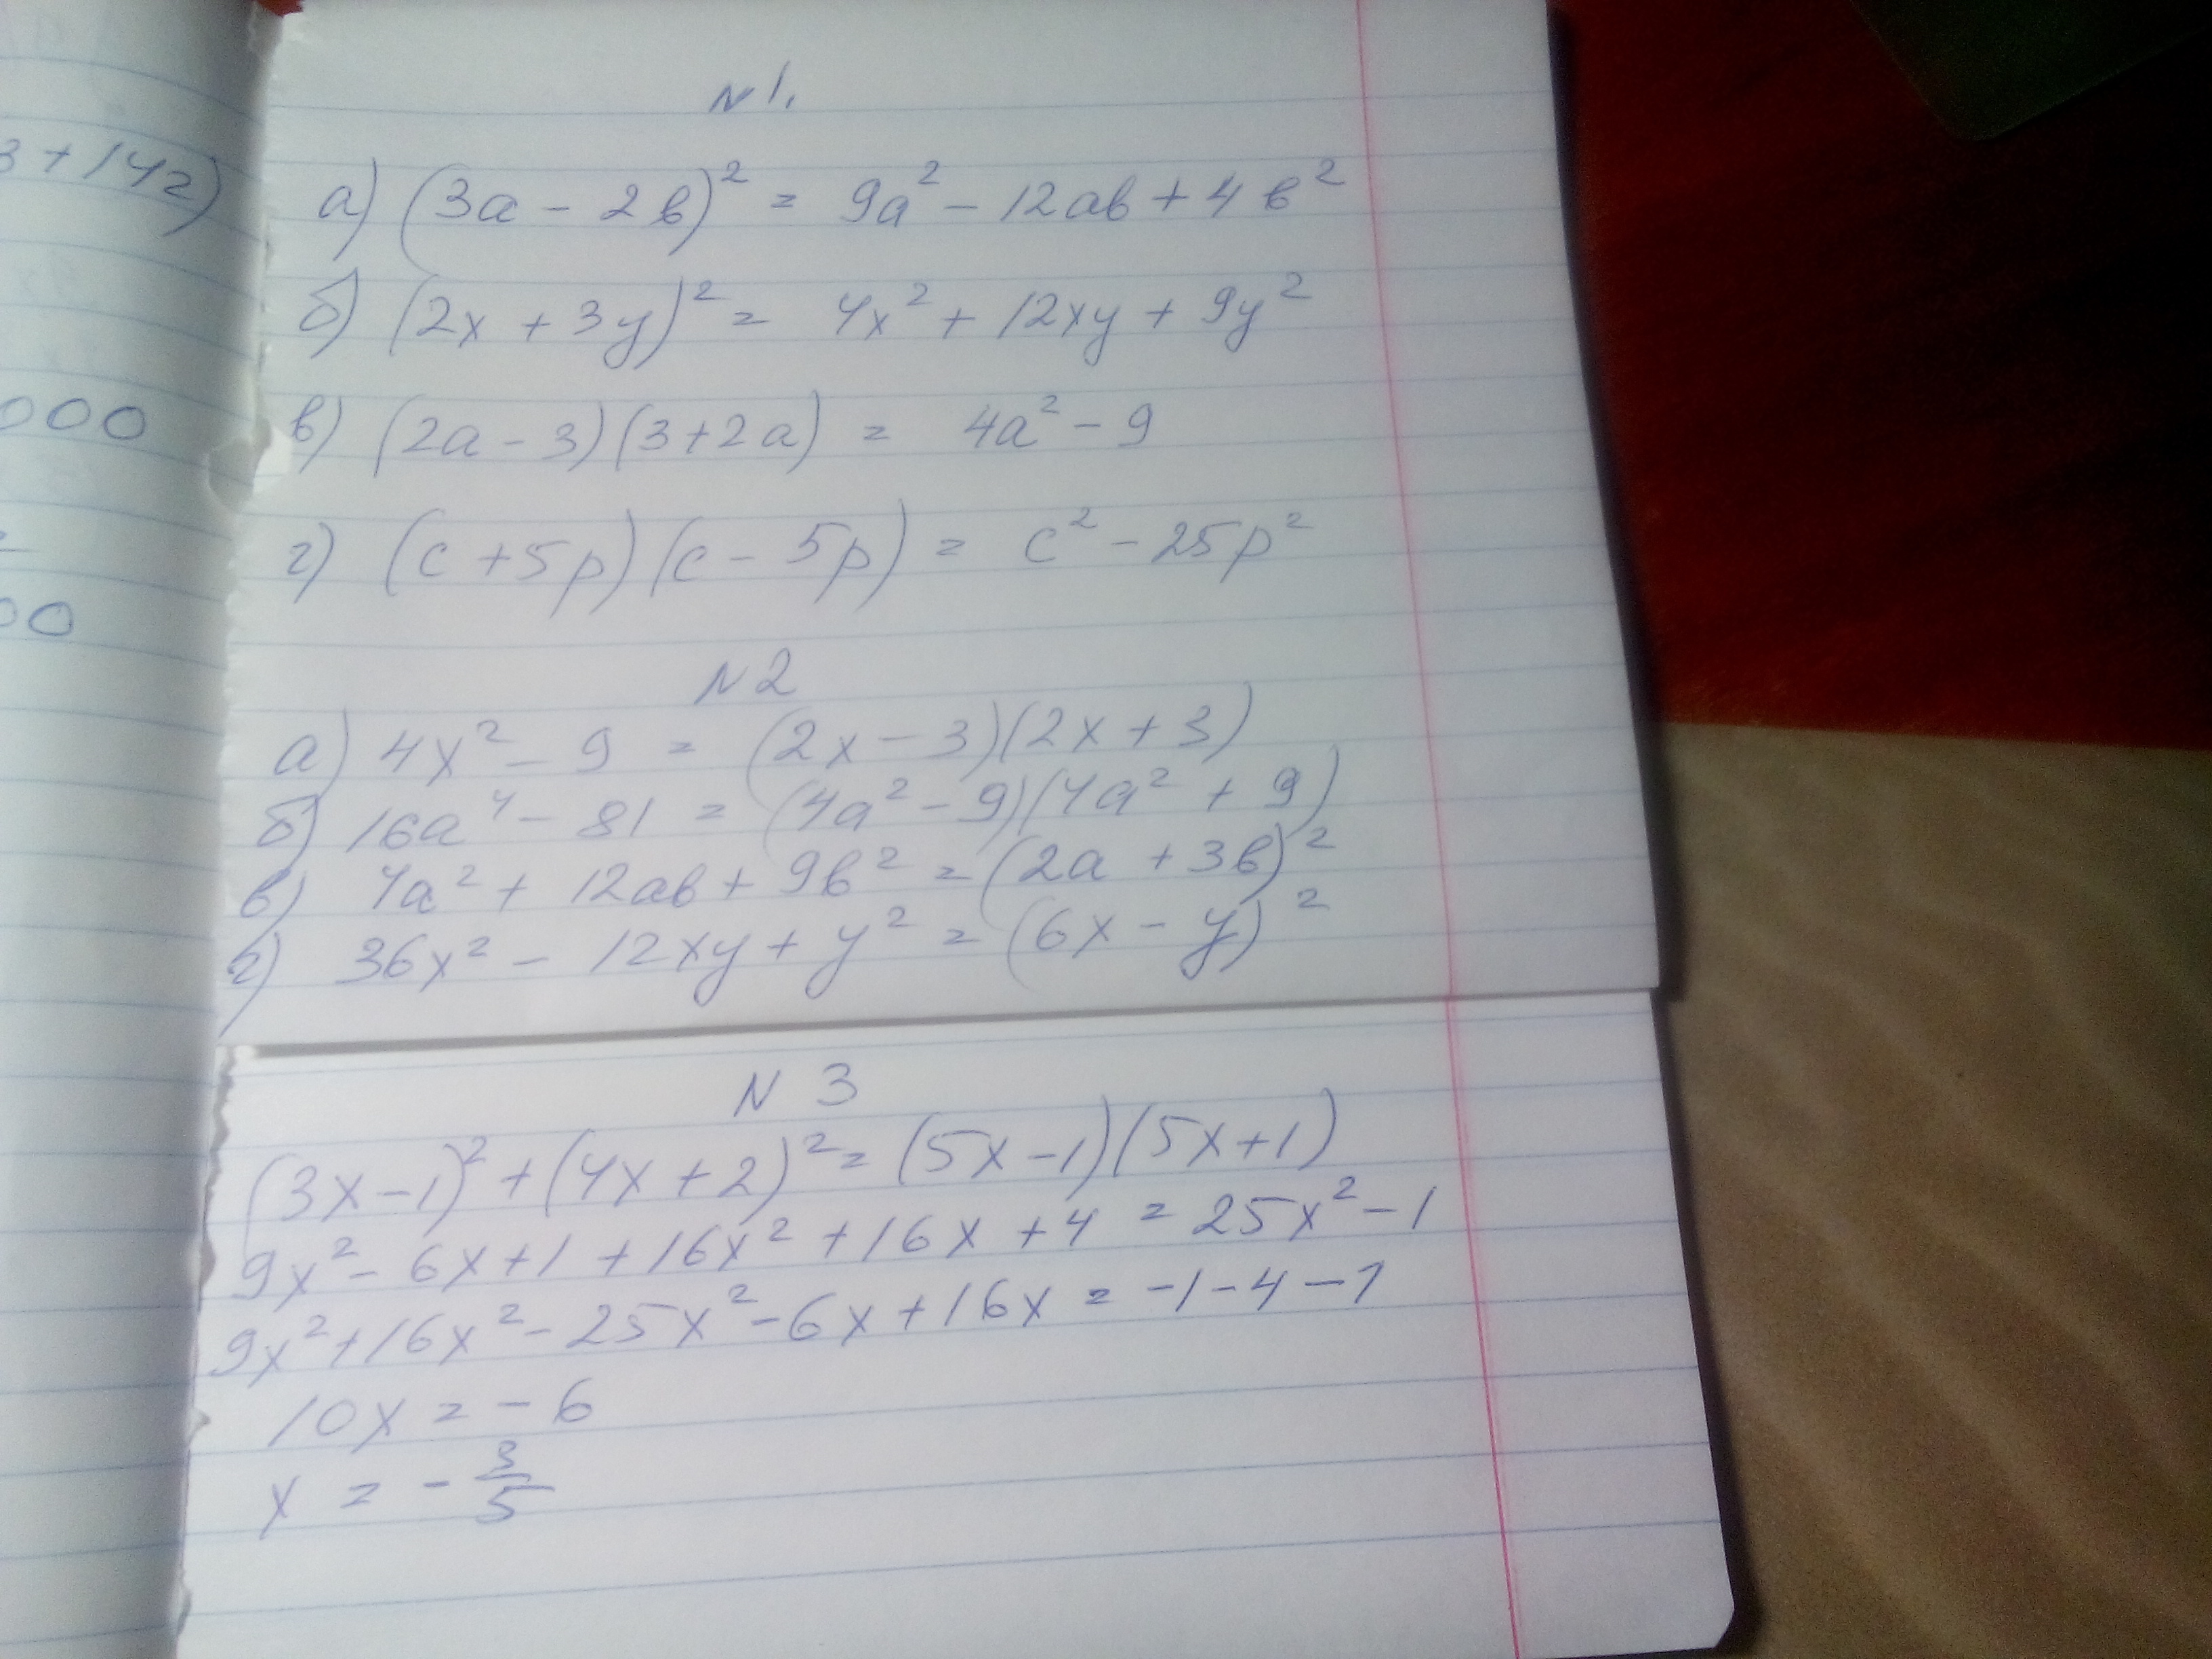 3 + 14z)
000
00
N 1.
а) (3a - 2b)² = 9a² - 12ab + 4b²
б) (2x + 3y)² = 4x² + 12xy + 9y²
в) (2a - 3)(3 + 2a) = 4a² - 9
г) (c + 5p)(c - 5p) = c² - 25p²
N 2
а) 4x² - 9 = (2x - 3)(2x + 3)
б) 16a⁴ - 81 = (4a² - 9)(4a² + 9)
в) 4a² + 12ab + 9b² = (2a + 3b)²
г) 36x² - 12xy + y² = (6x - y)²
N 3
(3x - 1)² + (4x + 2)² = (5x - 1)(5x + 1)
9x² - 6x + 1 + 16x² + 16x + 4 = 25x² - 1
9x² + 16x² - 25x² - 6x + 16x = -1 - 4 - 1
10x = - 6
x = - 3/5